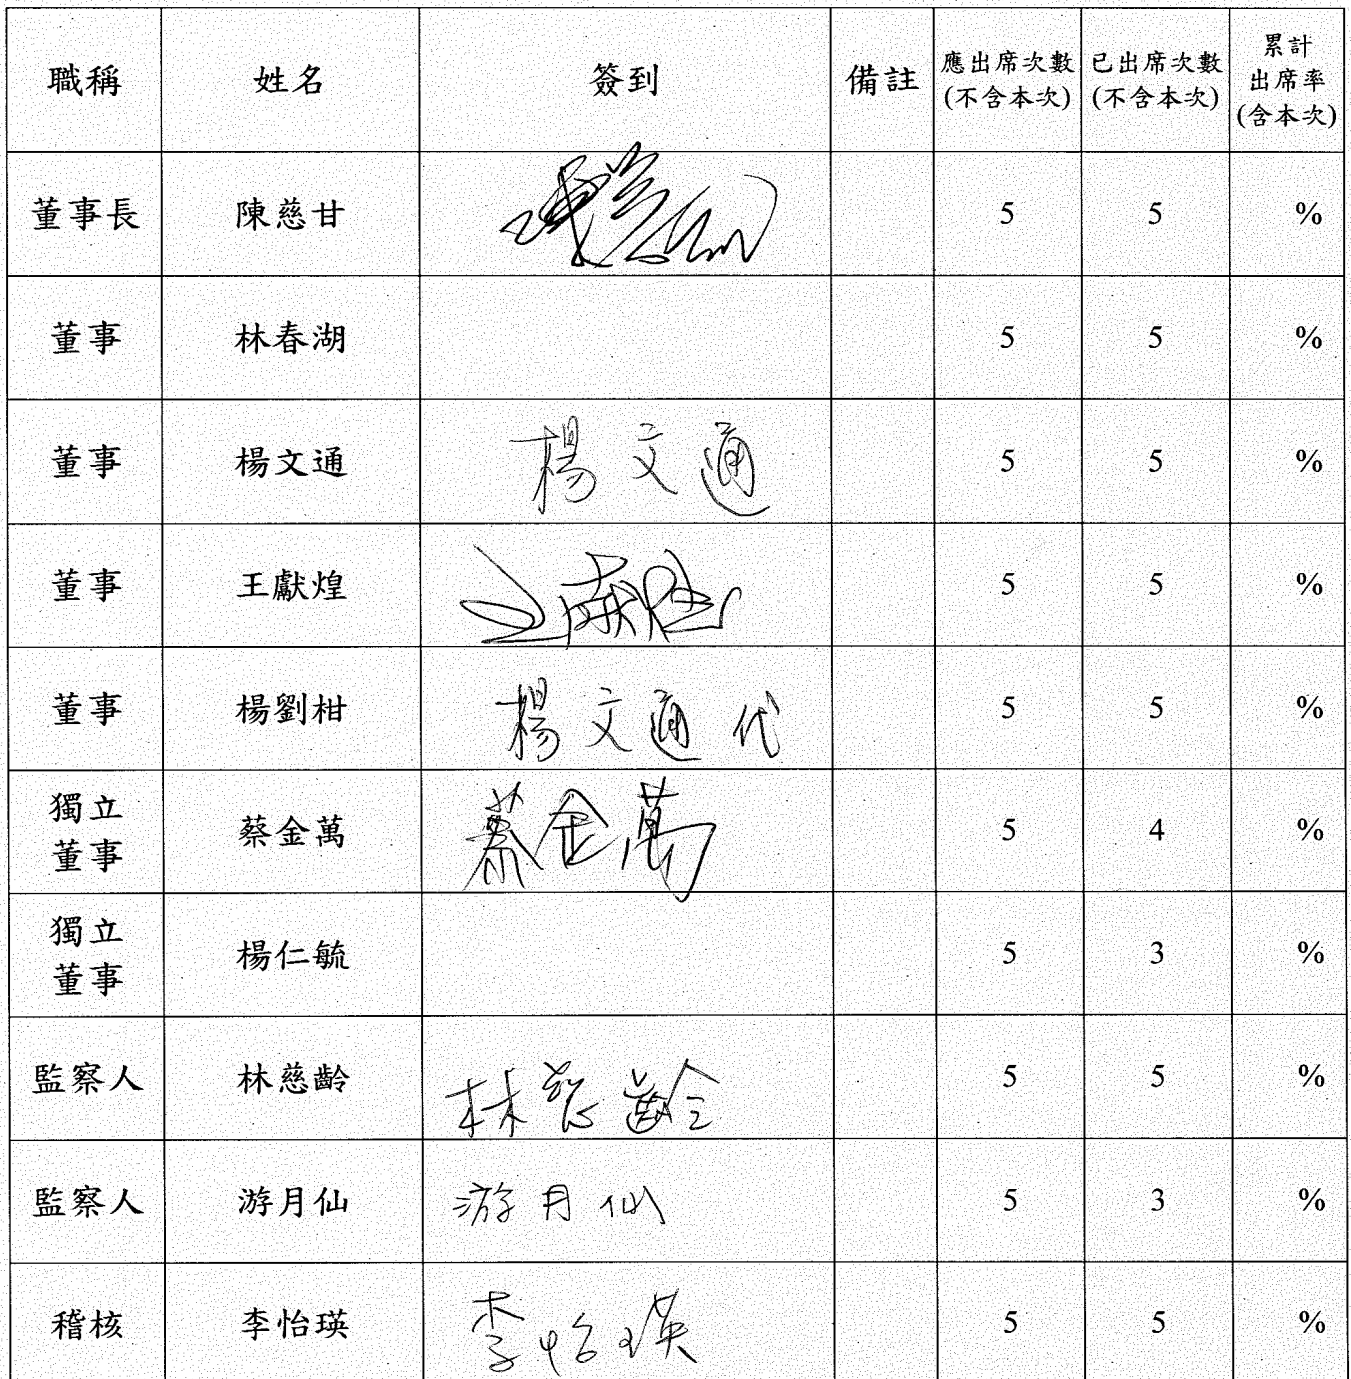 職稱 姓名 簽到 備註 應出席次數(不含本次) 已出席次數(不含本次) 累計出席率(含本次)
董事長 陳慈甘 陳慈甘 5 5 %
董事 林春湖 5 5 %
董事 楊文通 楊文通 5 5 %
董事 王獻煌 王獻煌 5 5 %
董事 楊劉柑 楊文通代 5 5 %
獨立董事 蔡金萬 蔡金萬 5 4 %
獨立董事 楊仁毓 5 3 %
監察人 林慈齡 林慈齡 5 5 %
監察人 游月仙 游月仙 5 3 %
稽核 李怡瑛 李怡瑛 5 5 %